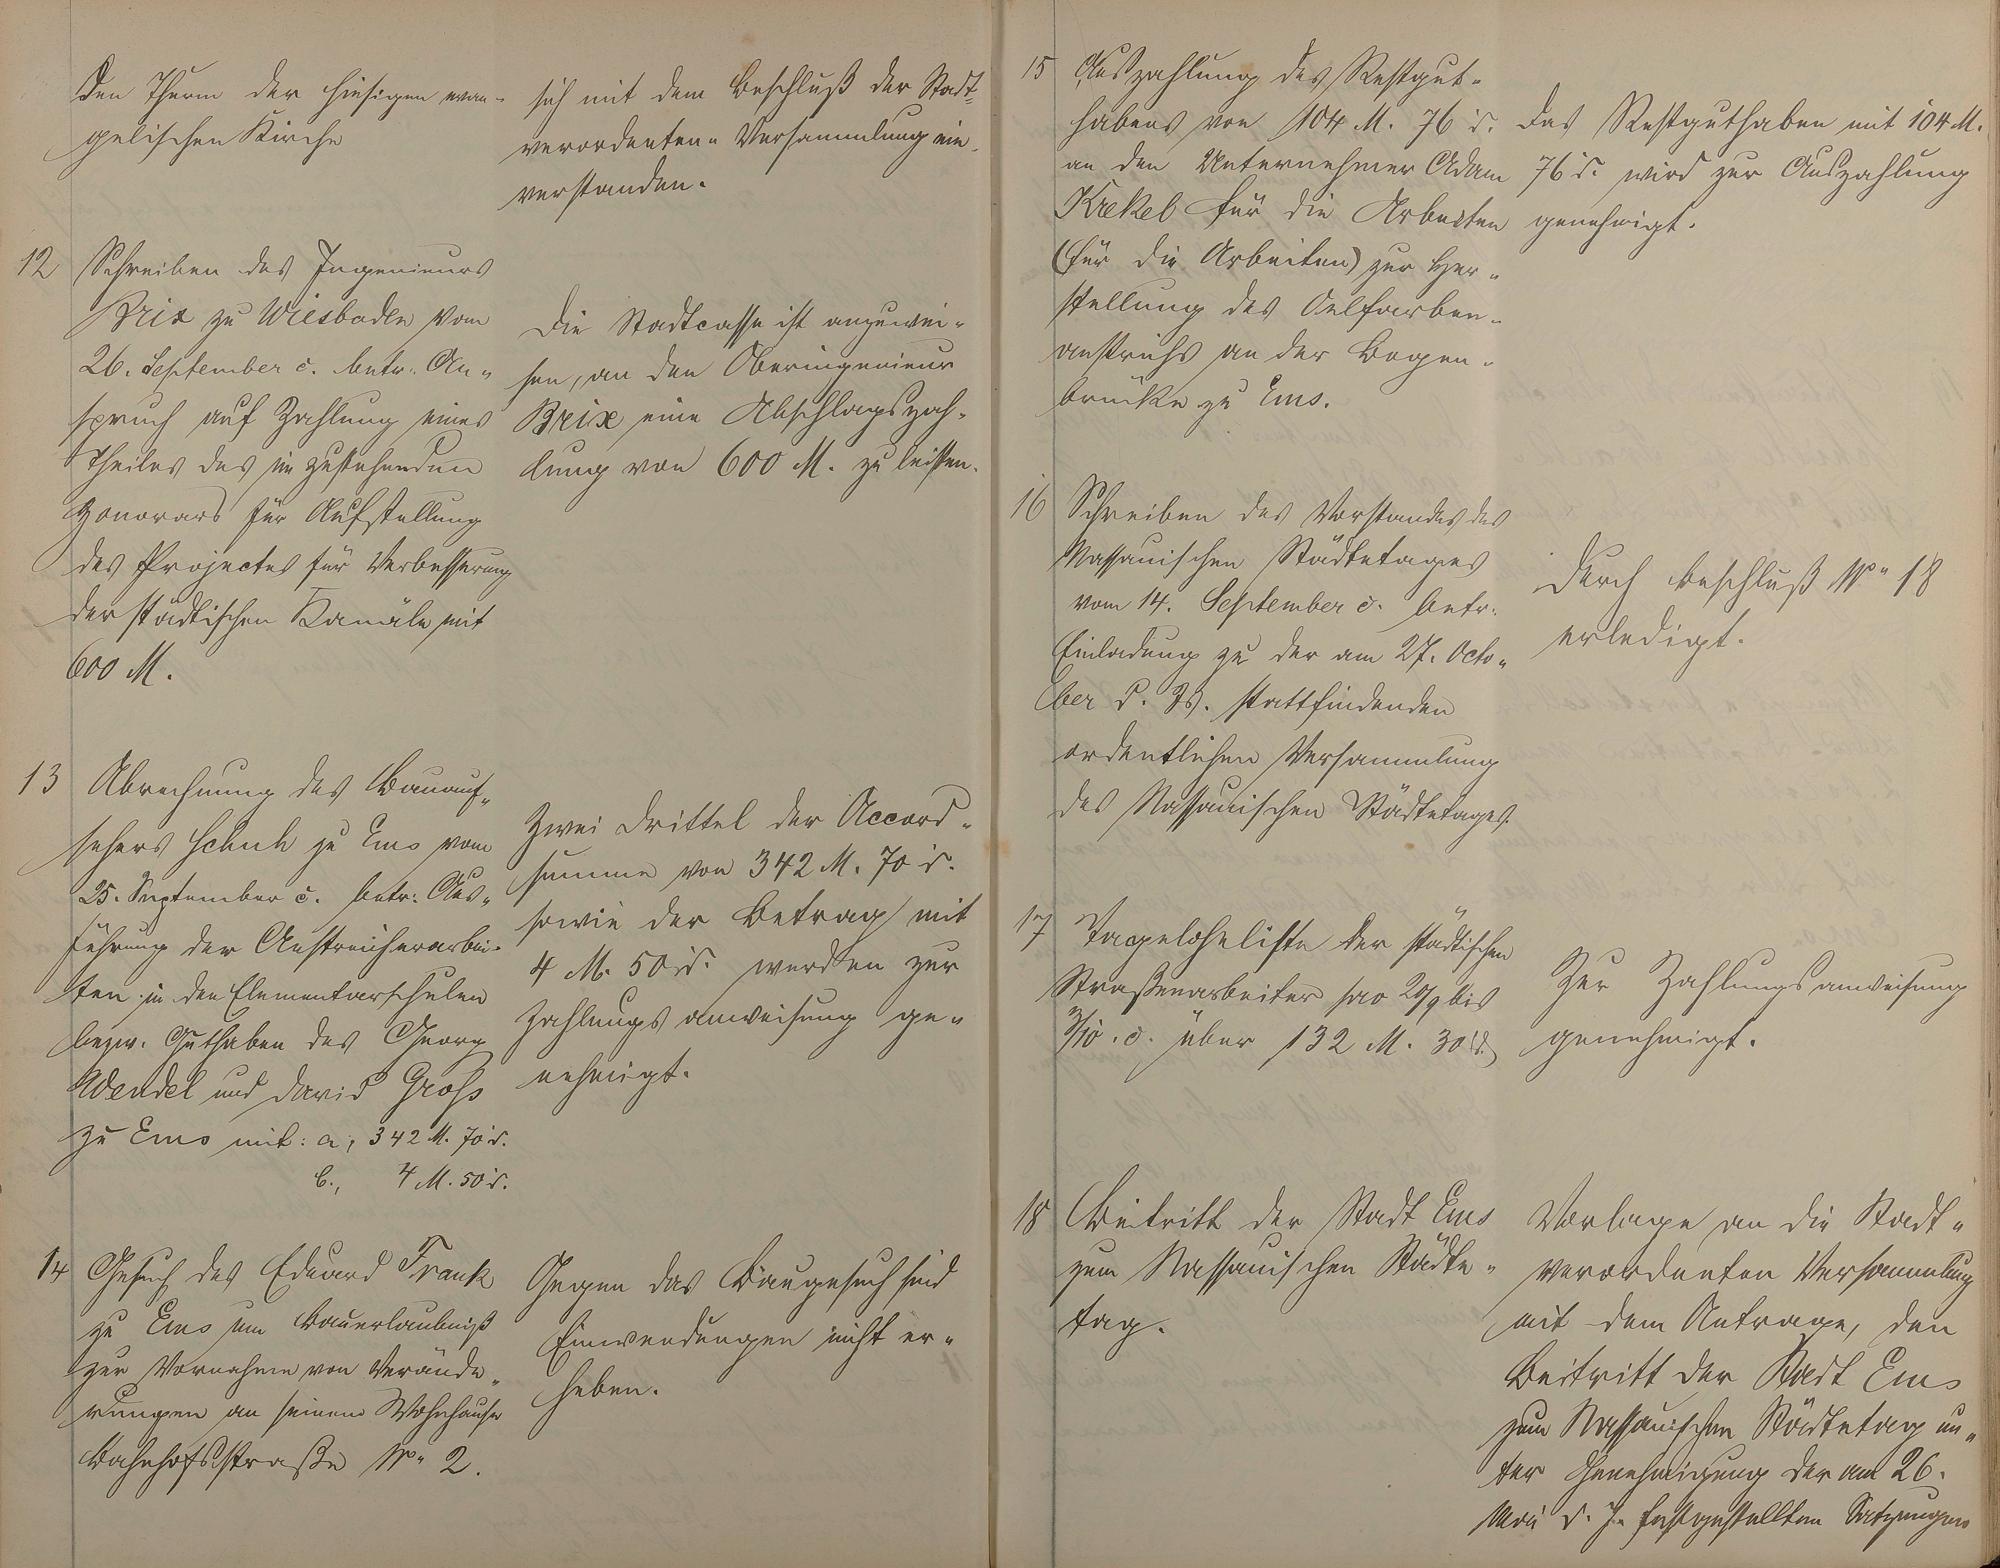 den Thurm der hiesigen evan-
gelischen Kirche
sich mit dem Beschluß der Stadt-
verordneten-Versammlung ein-
verstanden.
12 Schreiben des Ingenieurs
Brix zu Wiesbaden vom
26. September c. betr. An-
spruch auf Zahlung eines
Theiles des im zustehenden
Honorars für Aufstellung
des Projectes für Verbesserung
der städtischen Kanäle mit
600 M.
Die Stadtcasse ist anzuwei-
sen, an den Oberingenieur
Brix eine Abschlagszah-
lung von 600 M. zu leisten.
13 Abrechnung des Bauauf-
sehers Schuh zu Ems vom
25. September c. betr. Aus-
führung der Anstreicherarbei-
ten in den Elementarschulen
bezw. Guthaben des Georg
Wendel und David Groß
zu Ems mit: a, 342 M. 70 d.
b., 4 M. 50 d.
Zwei Drittel der Accord-
summe von 342 M. 70 d.
sowie der Betrag mit
4 M. 50 d. werden zur
Zahlungsanweisung ge-
nehmigt.
14 Gesuch des Eduard Frank
zu Ems um Bauerlaubniß
zur Vornahme von Verände-
rungen an seinem Wohnhause
Bahnhofsstraße No 2.
Gegen das Baugesuch sind
Einwendungen nicht er-
heben.
15 Auszahlung des Restgut-
habens von 104 M. 76 d.
an den Unternehmer Adam
Krekel für die Arbeiten
(für die Arbeiten) zur Her-
stellung des Oelfarben-
anstrichs an der Bogen-
brücke zu Ems.
Das Restguthaben mit 104 M.
76 d. wird zur Auszahlung
genehmigt.
16 Schreiben des Vorstandes des
Nassauischen Städtetages
vom 14. September c. betr.
Einladung zu der am 27. Octo-
ber d. Js. stattfindenden
ordentlichen Versammlung
des Nassauischen Städtetages.
Durch Beschluß No 18
erledigt.
17 Tagelohnliste der städtischen
Straßenarbeiter pro 20/9 bis
3/10. c. über 132 M. 30 d.
Zur Zahlungsanweisung
genehmigt.
18 Beitritt der Stadt Ems
zum Nassauischen Städte-
tag.
Vorlage an die Stadt-
verordneten Versammlung
mit dem Antrage, den
Beitritt der Stadt Ems
zum Nassauischen Städtetag un-
ter Genehmigung der am 26.
Mai d. J. festgestellten Satzungen